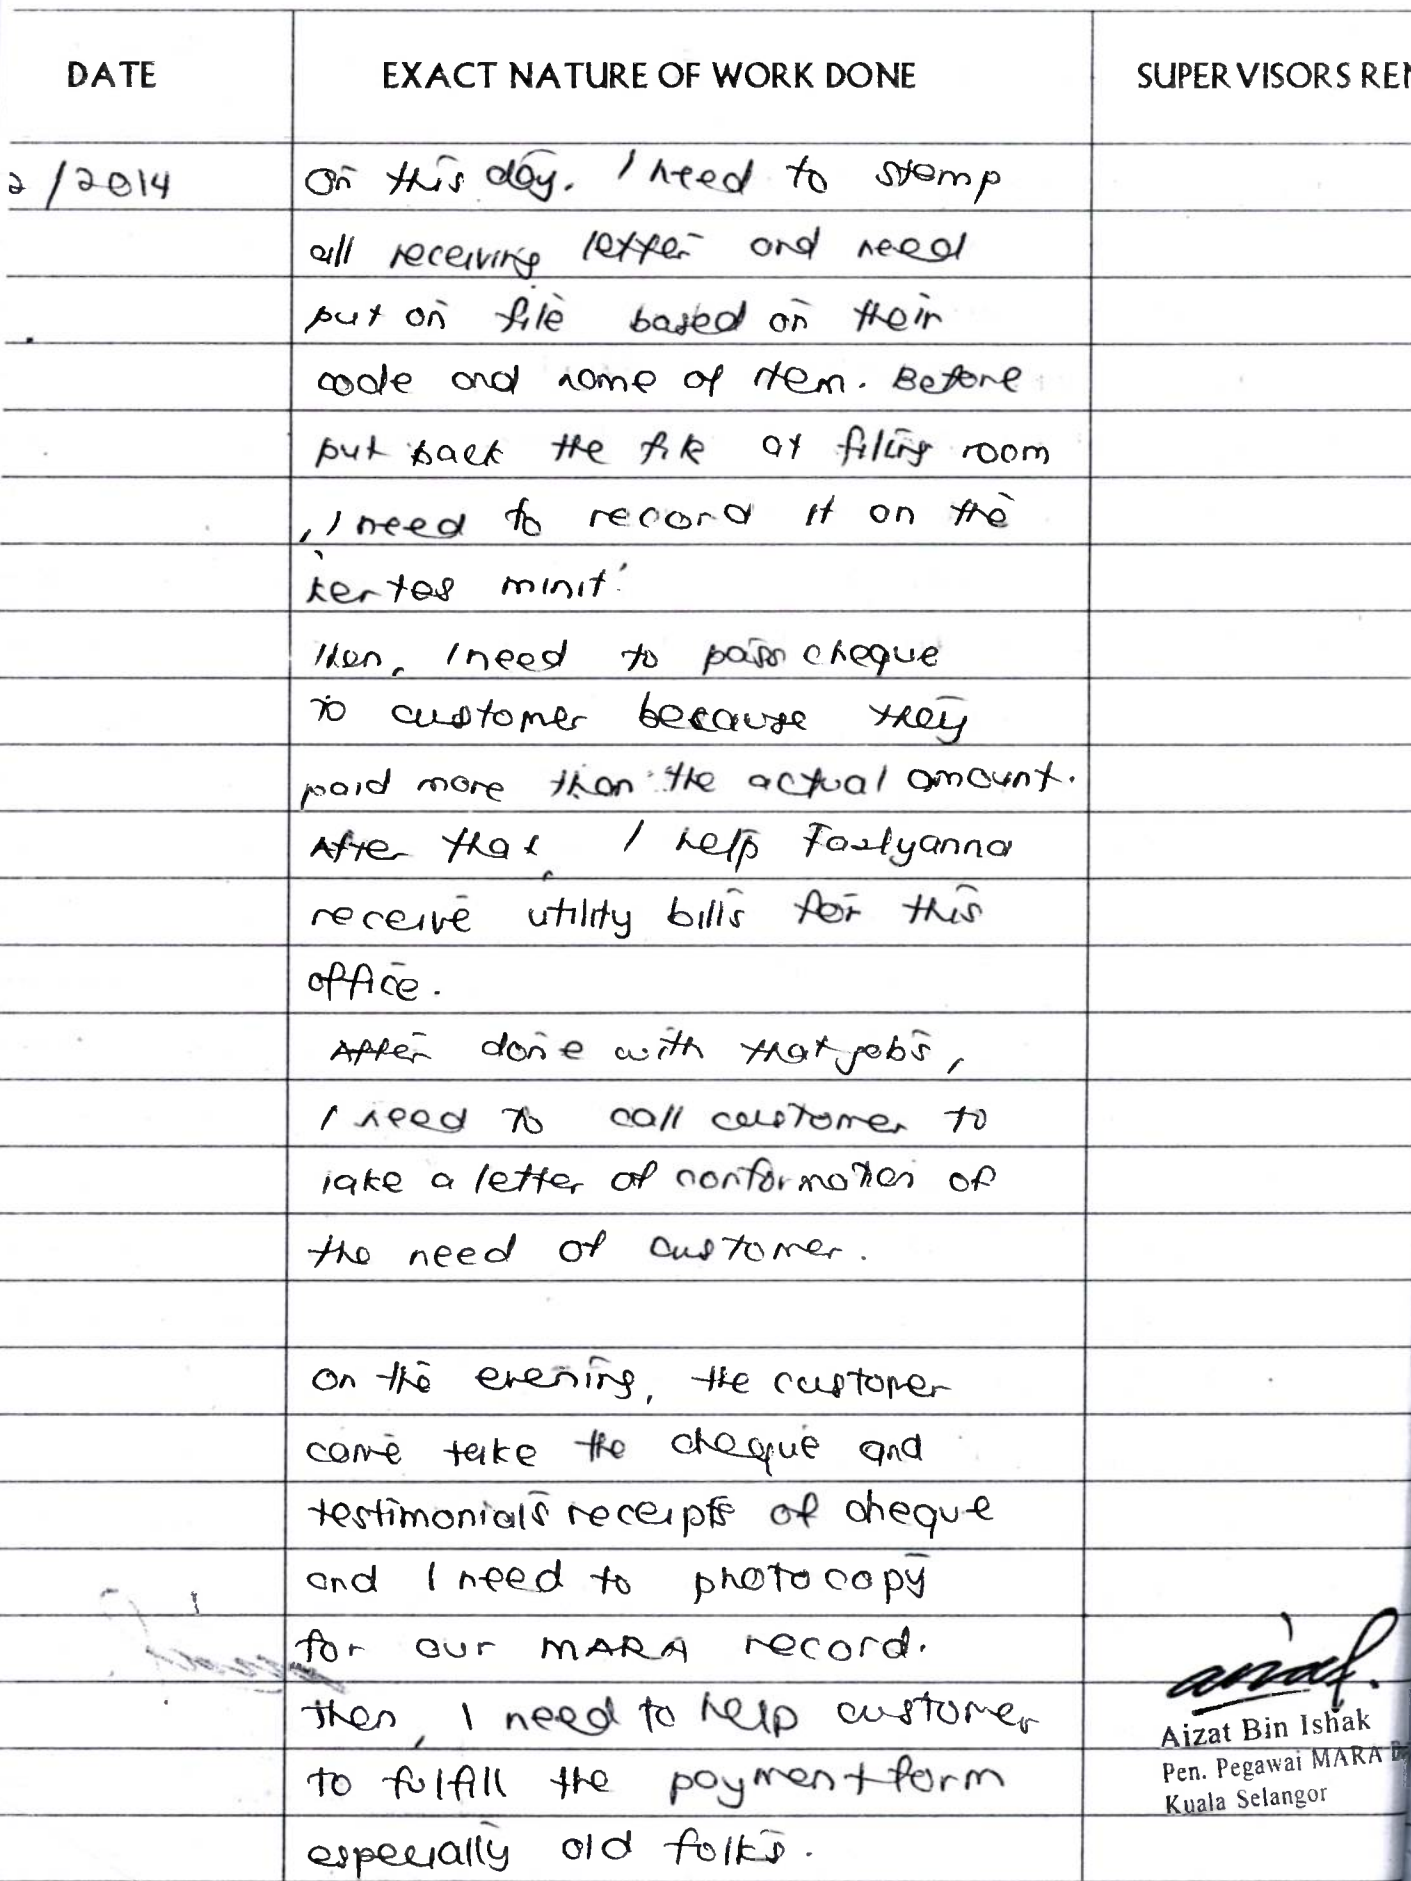 DATE EXACT NATURE OF WORK DONE SUPERVISORS REM
2/2014 On this day. I need to stamp
all receiving letter and need
put on file based on their
code and name of item. Before
put back the file at filing room
, I need to record it on the
'kertas minit'
Then, I need to pass cheque
to customer because they
paid more than the actual amount.
After that, I help Fazlyanna
receive utility bills for this
office.
After done with that jobs,
I need to call customer to
take a letter of conformation of
the need of customer.
On the evening, the customer
came take the cheque and
testimonials receipts of cheque
and I need to photocopy
for our MARA record.
Then, I need to help customer
to fulfill the payment form
especially old folks.
Aizat Bin Ishak
Pen. Pegawai MARA
Kuala Selangor